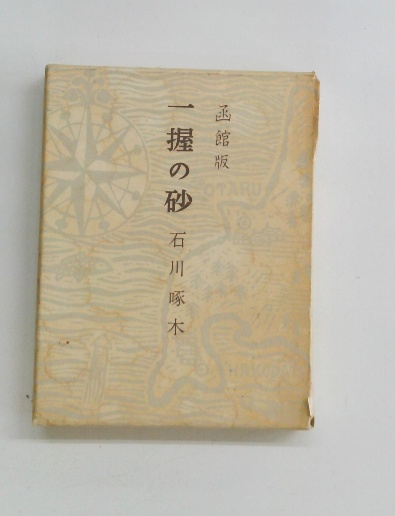 函館版
一握の砂
石川啄木
OTARU
HAKODATE